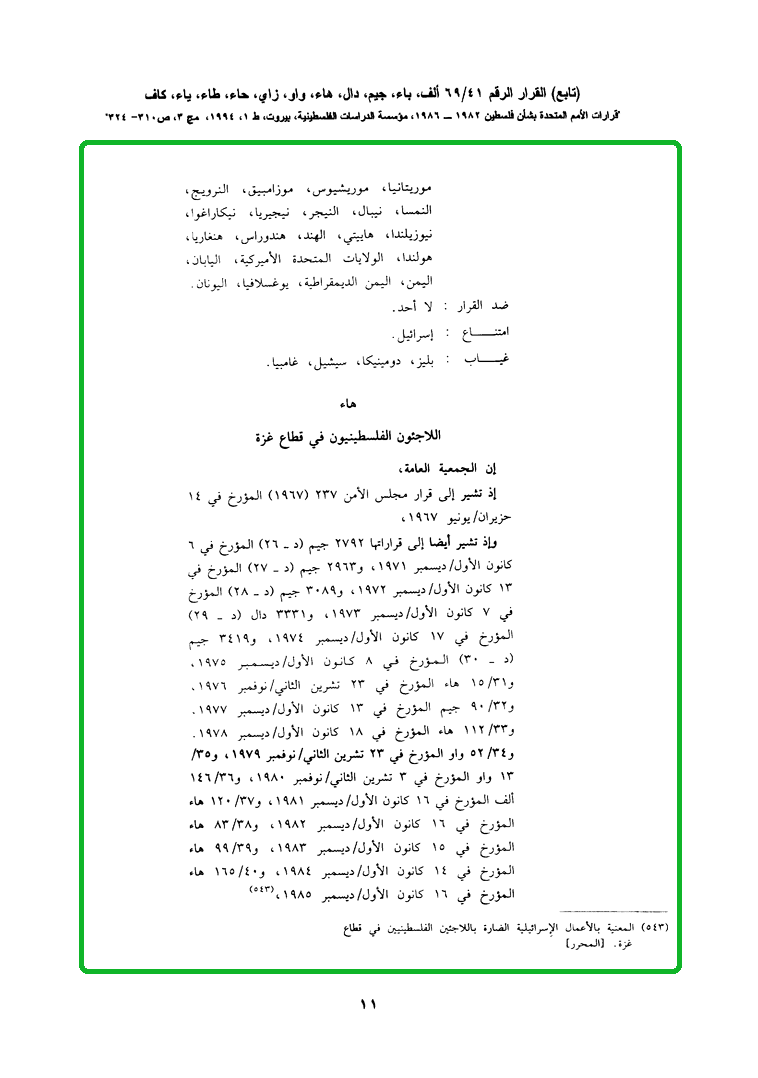 (تابع) القرار الرقم ٦٩/٤١ ألف، باء، جيم، دال، هاء، واو، زاي، حاء، طاء، ياء، كاف
"قرارات الأمم المتحدة بشأن فلسطين ١٩٨٢ ــ ١٩٨٦، مؤسسة الدراسات الفلسطينية، بيروت، ط ١، ١٩٩٤، مج ٣، ص٣١٠- ٣٢٤"
موريتانيا، موريشيوس، موزامبيق، النرويج،
النمسا، نيبال، النيجر، نيجيريا، نيكاراغوا،
نيوزيلندا، هاييتي، الهند، هندوراس، هنغاريا،
هولندا، الولايات المتحدة الأميركية، اليابان،
اليمن، اليمن الديمقراطية، يوغسلافيا، اليونان.
ضد القرار : لا أحد.
امتنـــــاع : إسرائيل.
غيـــــاب : بليز، دومينيكا، سيشيل، غامبيا.
هاء
اللاجئون الفلسطينيون في قطاع غزة
إن الجمعية العامة،
إذ تشير إلى قرار مجلس الأمن ٢٣٧ (١٩٦٧) المؤرخ في ١٤
حزيران/يونيو ١٩٦٧،
وإذ تشير أيضا إلى قراراتها ٢٧٩٢ جيم (د ـ ٢٦) المؤرخ في ٦
كانون الأول/ديسمبر ١٩٧١، و٢٩٦٣ جيم (د ـ ٢٧) المؤرخ في
١٣ كانون الأول/ديسمبر ١٩٧٢، و٣٠٨٩ جيم (د ـ ٢٨) المؤرخ
في ٧ كانون الأول/ديسمبر ١٩٧٣، و٣٣٣١ دال (د ـ ٢٩)
المؤرخ في ١٧ كانون الأول/ديسمبر ١٩٧٤، و٣٤١٩ جيم
(د ـ ٣٠) المؤرخ في ٨ كانون الأول/ديسمبر ١٩٧٥،
و١٥/٣١ هاء المؤرخ في ٢٣ تشرين الثاني/نوفمبر ١٩٧٦،
و٩٠/٣٢ جيم المؤرخ في ١٣ كانون الأول/ديسمبر ١٩٧٧،
و١١٢/٣٣ هاء المؤرخ في ١٨ كانون الأول/ديسمبر ١٩٧٨،
و٥٢/٣٤ واو المؤرخ في ٢٣ تشرين الثاني/نوفمبر ١٩٧٩، و٣٥/
١٣ واو المؤرخ في ٣ تشرين الثاني/نوفمبر ١٩٨٠، و١٤٦/٣٦
ألف المؤرخ في ١٦ كانون الأول/ديسمبر ١٩٨١، و١٢٠/٣٧ هاء
المؤرخ في ١٦ كانون الأول/ديسمبر ١٩٨٢، و٨٣/٣٨ هاء
المؤرخ في ١٥ كانون الأول/ديسمبر ١٩٨٣، و٩٩/٣٩ هاء
المؤرخ في ١٤ كانون الأول/ديسمبر ١٩٨٤، و١٦٥/٤٠ هاء
المؤرخ في ١٦ كانون الأول/ديسمبر ١٩٨٥،(٥٤٣)
(٥٤٣) المعنية بالأعمال الإسرائيلية الضارة باللاجئين الفلسطينيين في قطاع
غزة. [المحرر]
١١